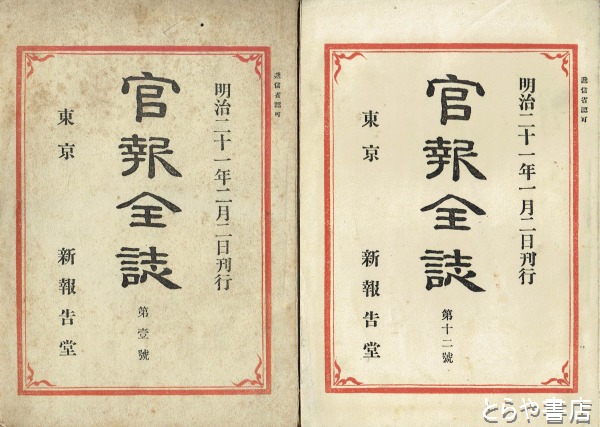 逓信省認可
明治二十一年二月二日刊行
官報全誌
第壹號
東京 新報告堂
逓信省認可
明治二十一年一月二日刊行
官報全誌
第十二號
東京 新報告堂
とらや書店